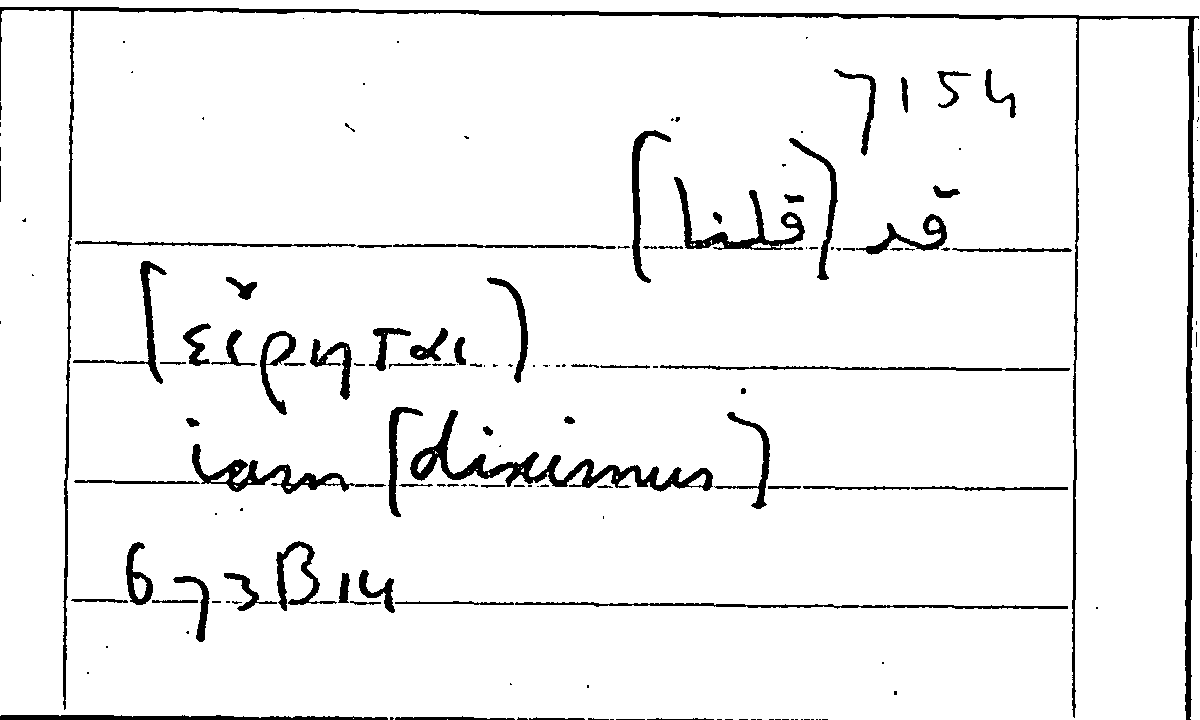 7154
قد (قلنا)
(εἴρηται)
iam (diximus)
673B14